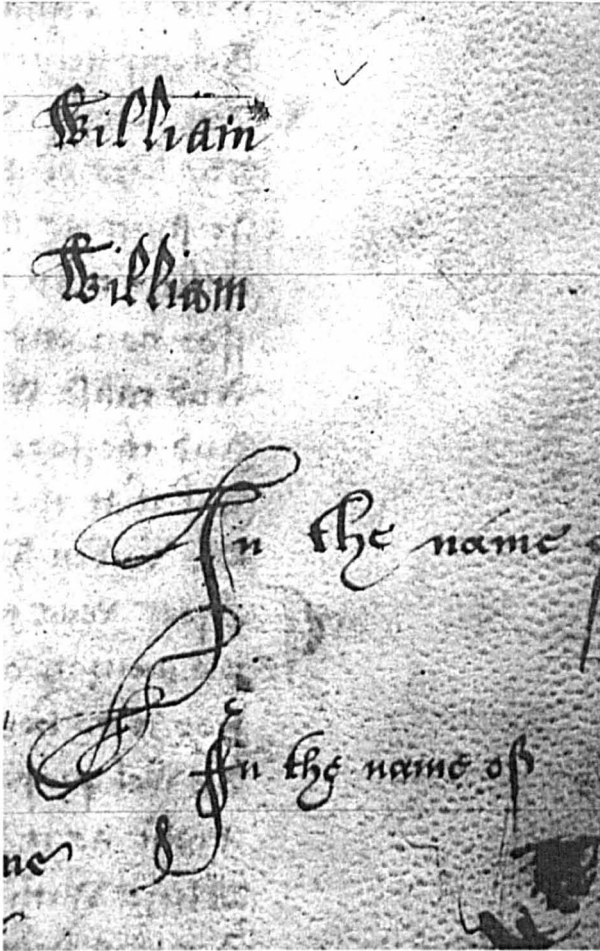 William
William
In the name
In the name of